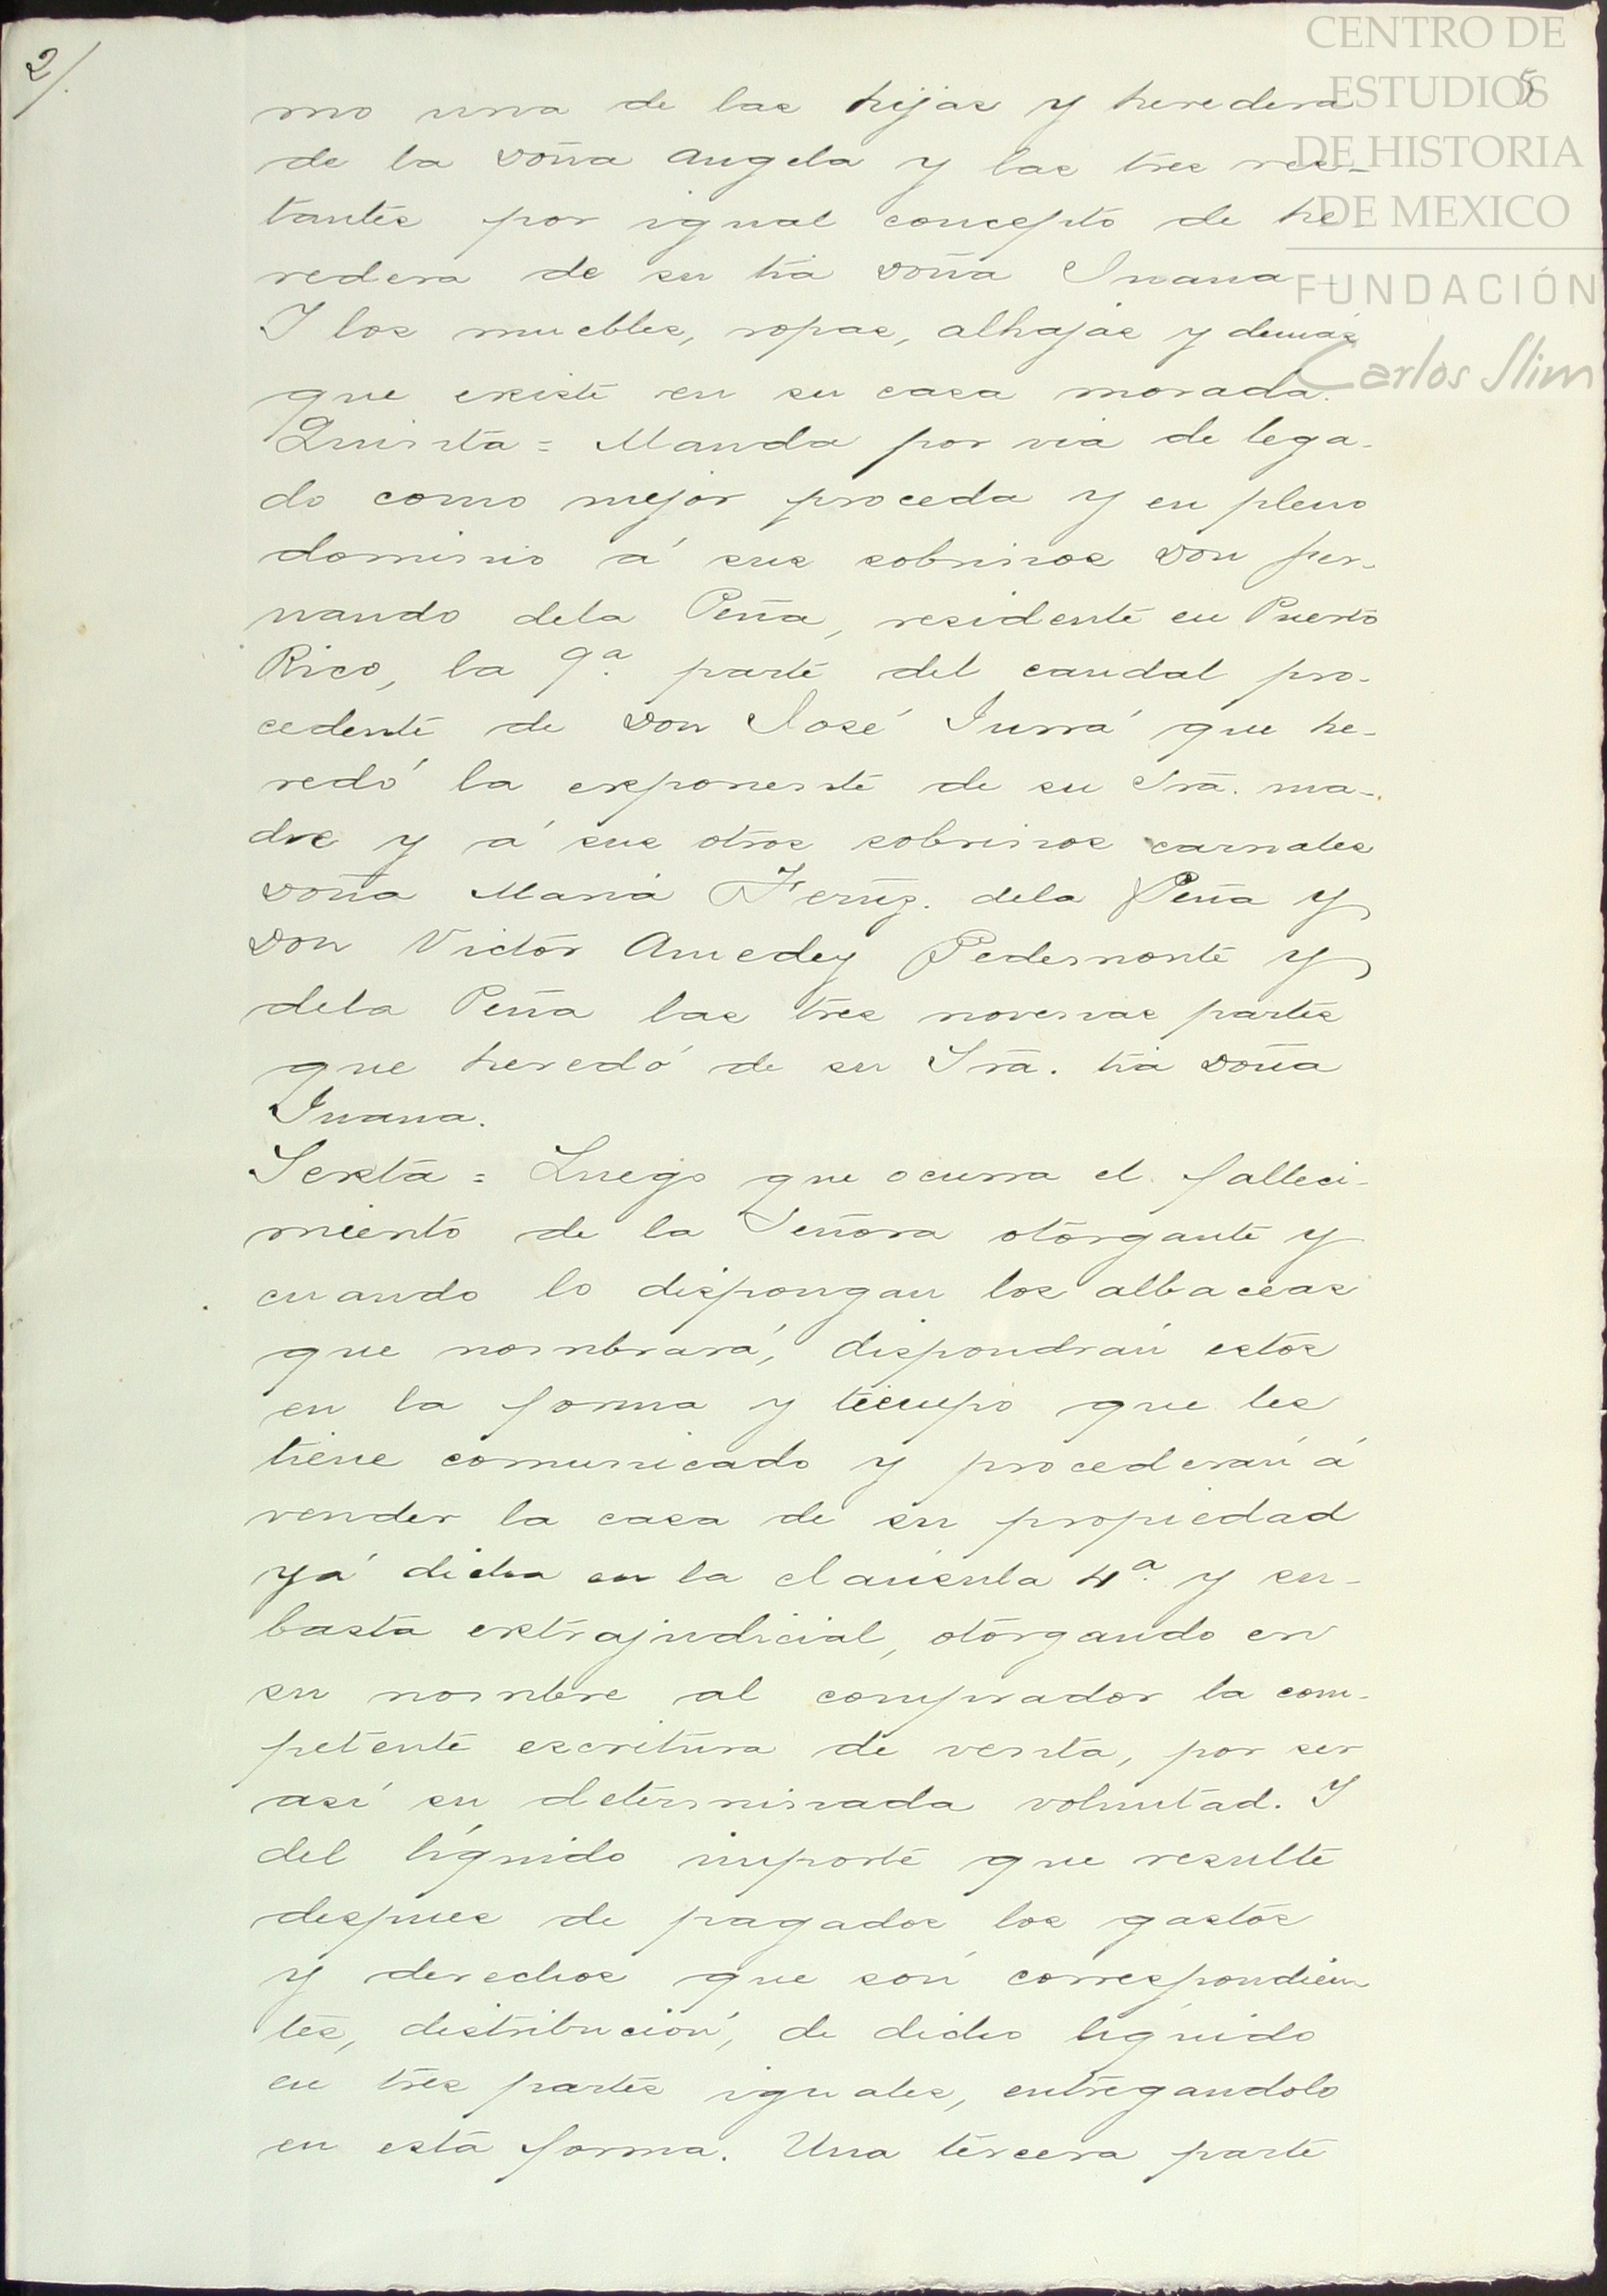 2/.
CENTRO DE
ESTUDIOS
DE HISTORIA
DE MEXICO
FUNDACIÓN
Carlos Slim
5
mo una de las hijas y heredera
de la Doña Angela y las tres res-
tantes por igual concepto de he
redera de su tia Doña Juana
I los muebles, ropas, alhajas y demás
que existe en su casa morada.
Quinta = Manda por via de lega-
do como mejor proceda y en pleno
dominio á sus sobrinos Don fer-
nando dela Peña, residente en Puerto
Rico, la 9ª. parte del caudal pro-
cedente de Don José Iurrá que he-
redó la exponente de su Sra. ma-
dre y á sus otros sobrinos carnales
Doña Maria Fernz. dela Peña y
Don Victor Amedey Pedemonte y
dela Peña las tres novenas partes
que heredó de su Sra. tia Doña
Juana.
Sexta = Luego que ocurra el falleci-
miento de la Señora otorgante y
cuando lo dispongan los albaceas
que nombrará, dispondrán estos
en la forma y tiempo que les
tiene comunicado y procederán á
vender la casa de su propiedad
yá dicha en la claúsula 4ª. y su-
basta extrajudicial, otorgando en
su nombre al comprador la com-
petente escritura de venta, por ser
así su determinada voluntad. I
del líquido importe que resulte
despues de pagados los gastos
y derechos que són correspondien
tes, distribución, de dicho líquido
en tres partes iguales, entregandolo
en esta forma. Una tercera parte